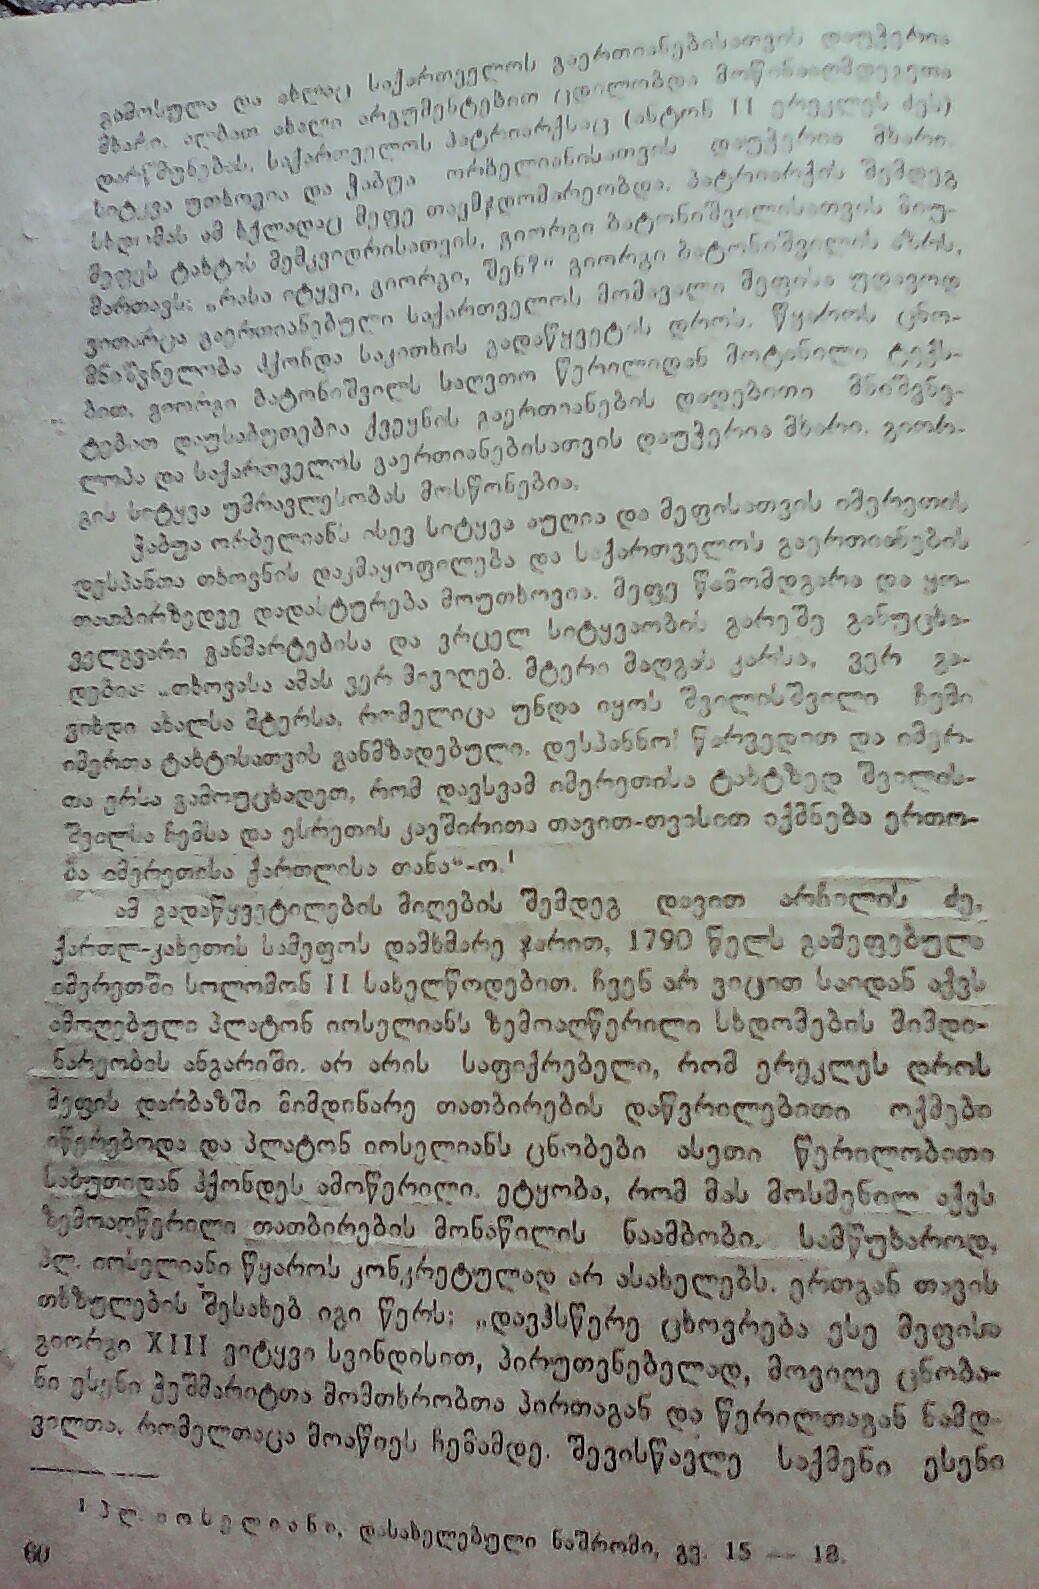 გამოსულა და ახლაც საქართველოს გაერთიანებისათვის დაუჭერია
მხარი. ალბათ ახალი არგუმენტებით ცდილობდა მოწინააღმდეგეთა
დარწმუნებას. საქართველოს პატრიარქსაც (ანტონ II ერეკლეს ძეს)
სიტყვა უთხოვია და ჭაბუა ორბელიანისათვის დაუჭერია მხარი.
სხდომას ამ ხელადაც მეფე თავმჯდომარეობდა. პატრიარქის შემდეგ
მეფეს ტახტის მემკვიდრისათვის, გიორგი ბატონიშვილისათვის მიუ-
მართავს: „რასა იტყვი, გიორგი, შენ?“ გიორგი ბატონიშვილის აზრს,
ვითარცა გაერთიანებული საქართველოს მომავალი მეფისა უდავოდ
მნიშვნელობა ჰქონდა საკითხის გადაწყვეტის დროს. წყაროს ცნო-
ბით, გიორგი ბატონიშვილს საღვთო წერილიდან მოტანილი ტექს-
ტებით დაუსაბუთებია ქვეყნის გაერთიანების დადებითი მნიშვნე-
ლობა და საქართველოს გაერთიანებისათვის დაუჭერია მხარი. გიორ-
გის სიტყვა უმრავლესობას მოსწონებია.
ჭაბუა ორბელიანს ისევ სიტყვა აუღია და მეფისათვის იმერეთის
დესპანთა თხოვნის დაკმაყოფილება და საქართველოს გაერთიანების
თათბირზედვე დადასტურება მოუთხოვია. მეფე წამომდგარა და ყო-
ველგვარი განმარტებისა და ვრცელ სიტყვაობის გარეშე განუცხა-
დებია: „თხოვასა ამას ვერ მივიღებ. მტერი მადგას კარსა, ვერ გა-
ვიხდი ახალსა მტერსა, რომელიცა უნდა იყოს შვილისშვილი ჩემი
იმერთა ტახტისათვის განმზადებული. დესპანნო! წარვედით და იმერ-
თა ერსა გამოუცხადეთ, რომ დავსვამ იმერეთისა ტახტზედ შვილის-
შვილსა ჩემსა და ესრეთის კავშირითა თავით-თვისით იქმნება ერთო-
ბა იმერეთისა ქართლისა თანა“-ო.¹
ამ გადაწყვეტილების მიღების შემდეგ დავით არჩილის ძე,
ქართლ-კახეთის სამეფოს დამხმარე ჯარით, 1790 წელს გამეფებულა
იმერეთში სოლომონ II სახელწოდებით. ჩვენ არ ვიცით საიდან აქვს
ამოღებული პლატონ იოსელიანს ზემოაღწერილი სხდომების მიმდი-
ნარეობის ანგარიში. არ არის საფიქრებელი, რომ ერეკლეს დროს
მეფის დარბაზში მიმდინარე თათბირების დაწვრილებითი ოქმები
იწერებოდა და პლატონ იოსელიანს ცნობები ასეთი წერილობითი
საბუთიდან ჰქონდეს ამოწერილი. ეტყობა, რომ მას მოსმენილ აქვს
ზემოაღწერილი თათბირების მონაწილის ნაამბობი. სამწუხაროდ,
პლ. იოსელიანი წყაროს კონკრეტულად არ ასახელებს. ერთგან თავის
თხზულების შესახებ იგი წერს: „დავჰსწერე ცხოვრება ესე მეფისა
გიორგი XIII ვიტყვი სვინდისით, პირუთვნებელად, მოვიღე ცნობა-
ნი ესენი ჭეშმარიტთა მომთხრობთა პირთაგან და წერილთაგან ნამდ-
ვილთა, რომელთაცა მოაწიეს ჩემამდე. შევისწავლე საქმენი ესენი
¹ პლ. იოსელიანი, დასახელებული ნაშრომი, გვ. 15 — 18.
60